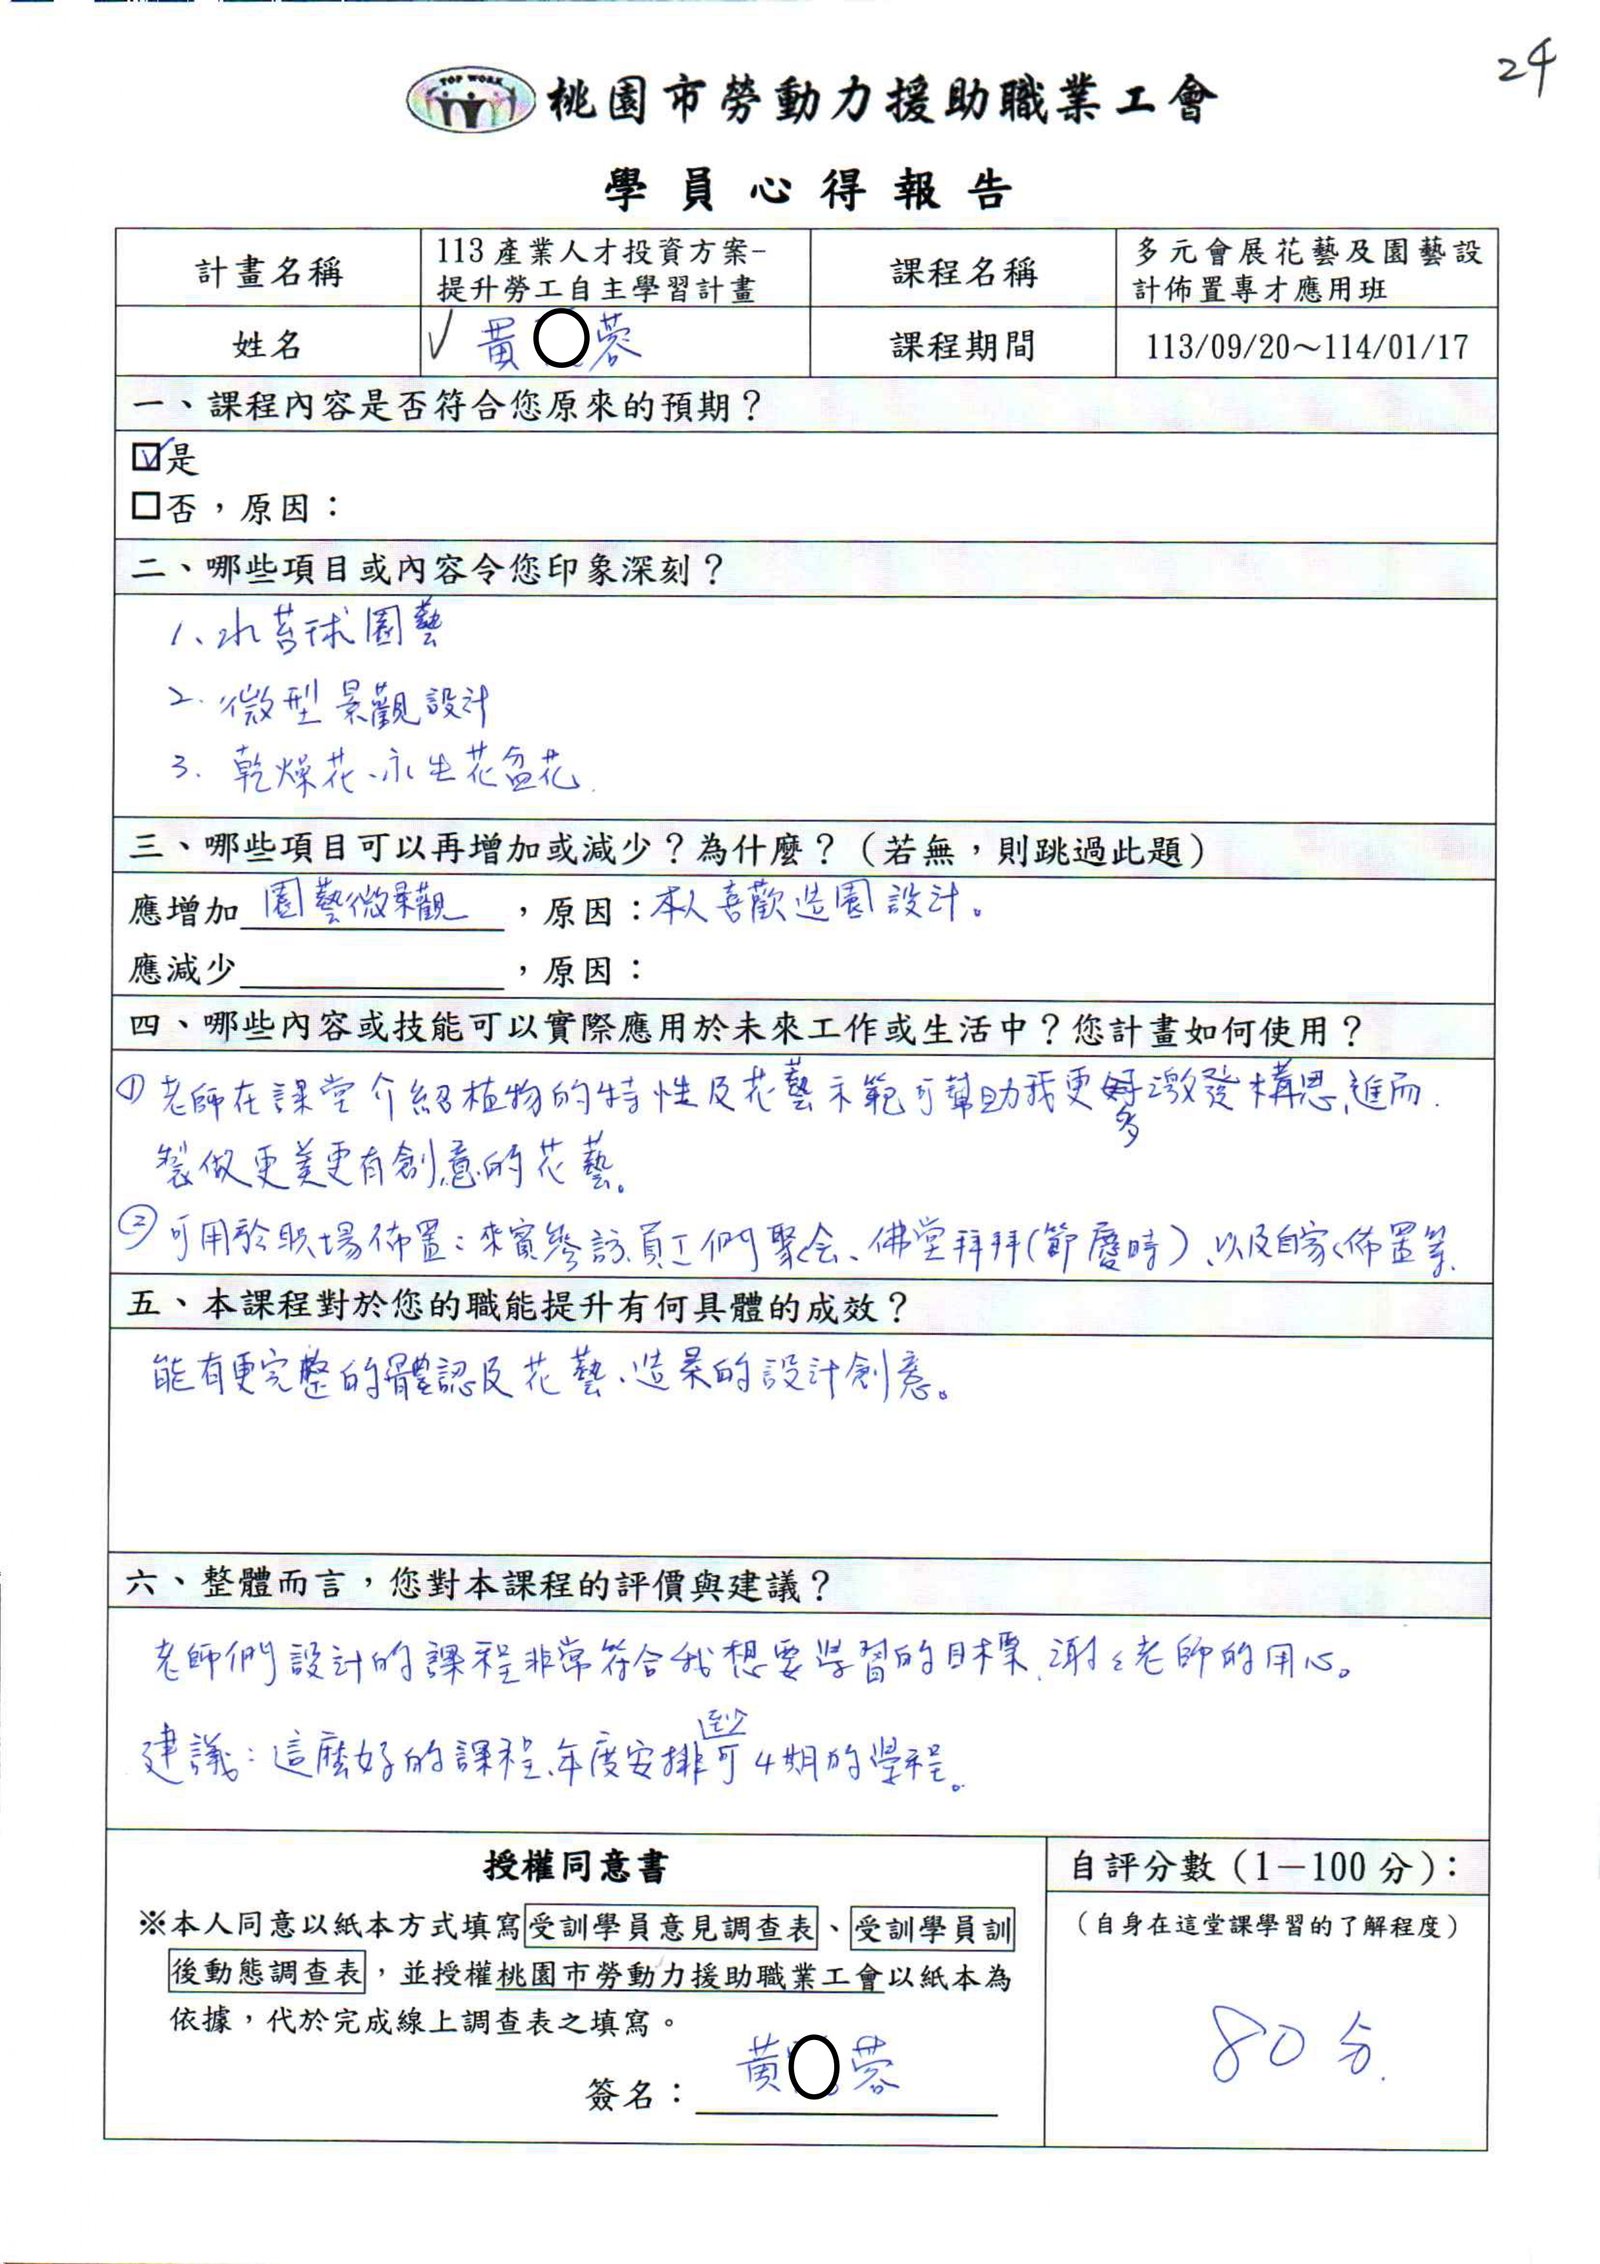 24
TOP WORK
桃園市勞動力援助職業工會
學員心得報告
計畫名稱
113產業人才投資方案-
提升勞工自主學習計畫
課程名稱
多元會展花藝及園藝設
計佈置專才應用班
姓名
✓ 黃○蓉
課程期間
113/09/20～114/01/17
一、課程內容是否符合您原來的預期？
☑是
□否，原因：
二、哪些項目或內容令您印象深刻？
1、水苔球園藝
2. 微型景觀設計
3. 乾燥花、永生花盆花.
三、哪些項目可以再增加或減少？為什麼？（若無，則跳過此題）
應增加 園藝微景觀 ，原因：本人喜歡造園設計。
應減少＿＿＿＿＿＿，原因：
四、哪些內容或技能可以實際應用於未來工作或生活中？您計畫如何使用？
① 老師在課堂介紹植物的特性及花藝示範可幫助我更多激發構思、進而
製做更美更有創意的花藝。
② 可用於职場佈置：來賓參訪、員工們聚会、佛堂拜拜(節慶時)、以及自家佈置等.
五、本課程對於您的職能提升有何具體的成效？
能有更完整的體認及花藝、造景的設計創意。
六、整體而言，您對本課程的評價與建議？
老師們設計的課程非常符合我想要學習的目標、謝々老師的用心。
建議：這麼好的課程、年度安排可至少4期的學程。
授權同意書
※本人同意以紙本方式填寫受訓學員意見調查表、受訓學員訓
後動態調查表，並授權桃園市勞動力援助職業工會以紙本為
依據，代於完成線上調查表之填寫。
簽名：黃○蓉
自評分數（1－100分）：
（自身在這堂課學習的了解程度）
80分.